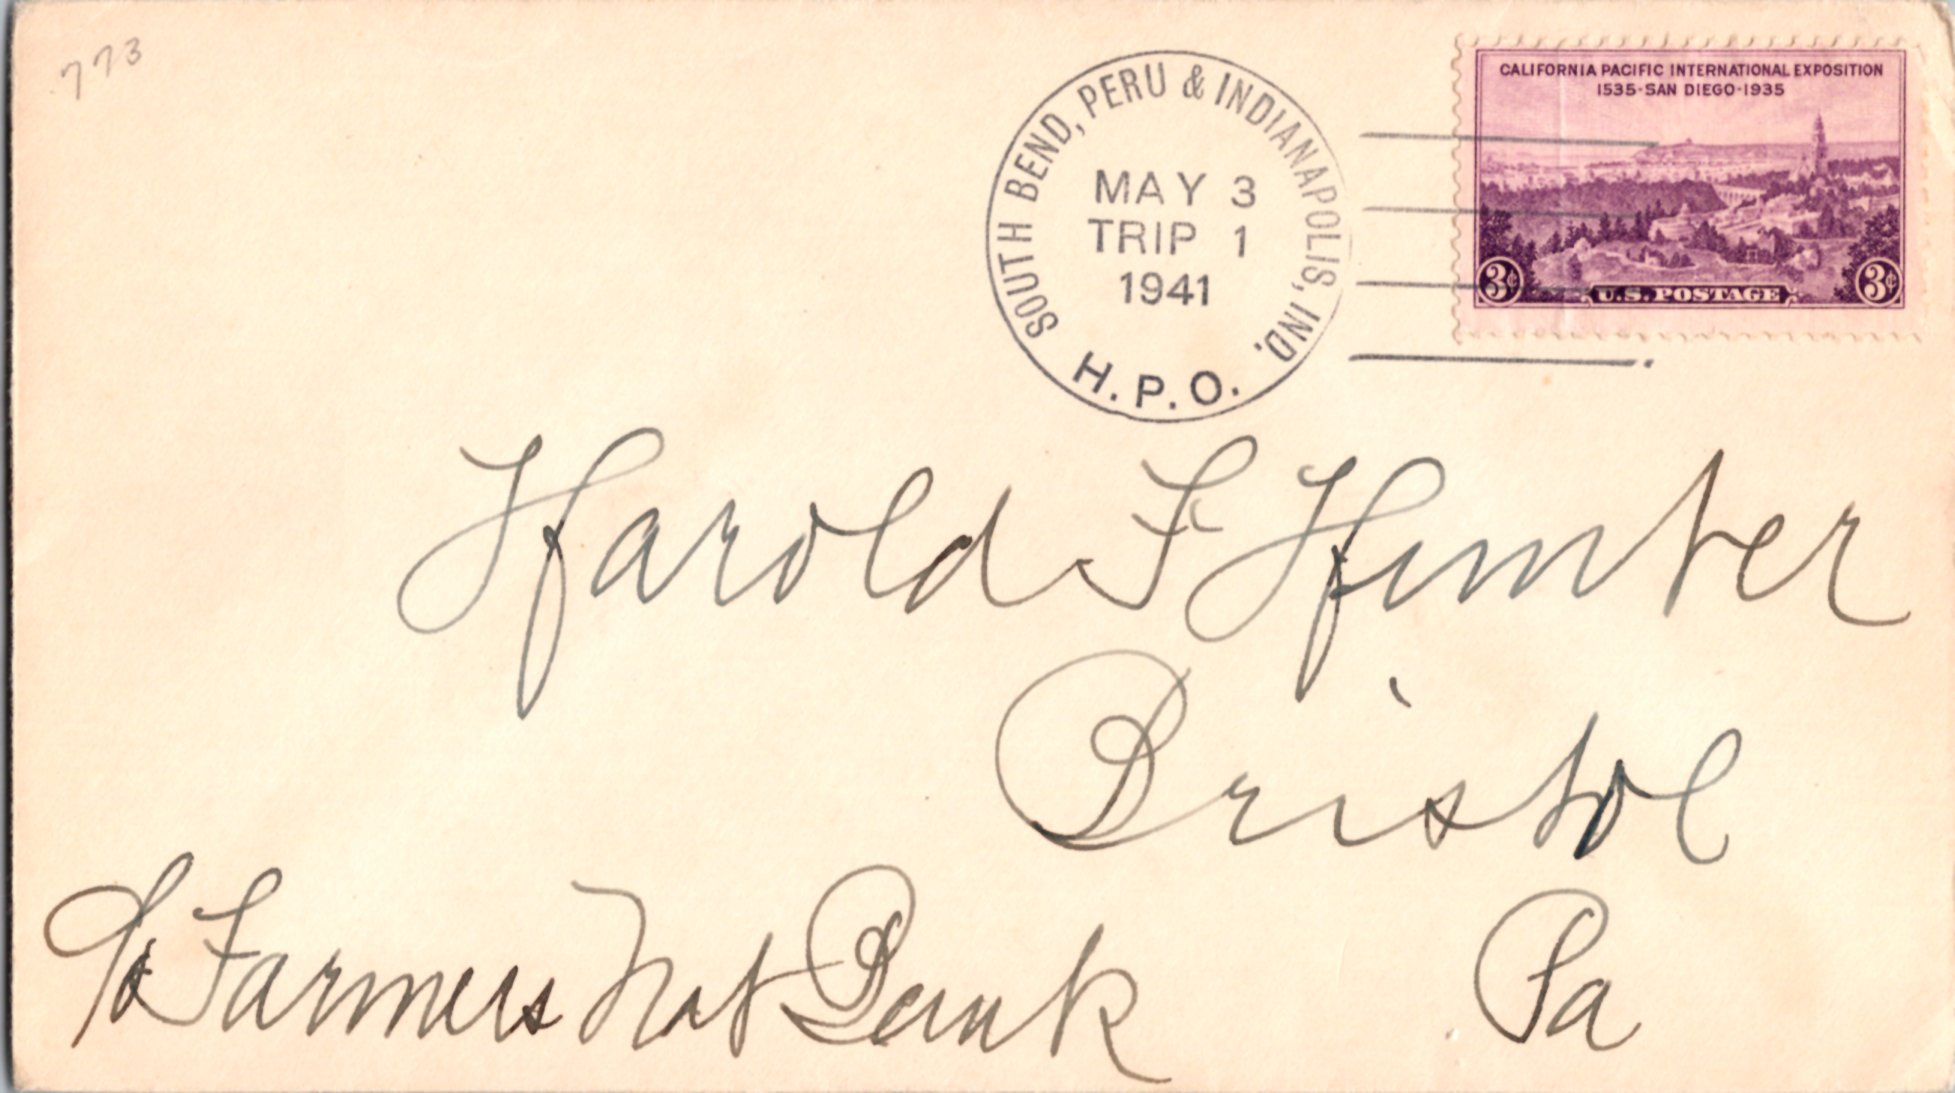 773
SOUTH BEND, PERU & INDIANAPOLIS, IND.
MAY 3
TRIP 1
1941
H.P.O.
CALIFORNIA PACIFIC INTERNATIONAL EXPOSITION
1535·SAN DIEGO·1935
3¢ U.S. POSTAGE 3¢
Harold F Hunter
Bristol
Pa
% Farmers Nat Bank